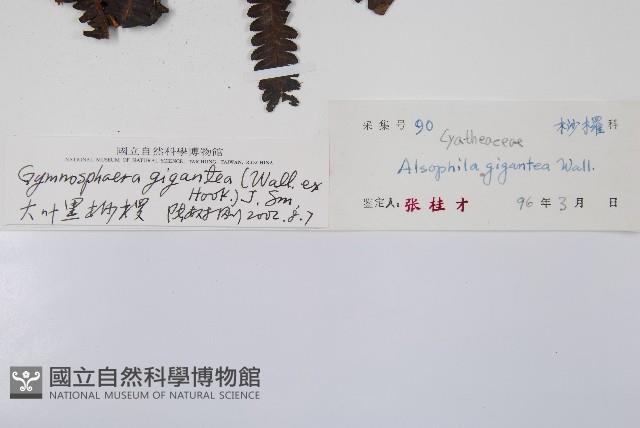 國立自然科學博物館
NATIONAL MUSEUM OF NATURAL SCIENCE, TAICHUNG, TAIWAN, R.O.CHINA
Gymnosphaera gigantea (Wall. ex
Hook.) J. Sm
大叶黑桫椤 2002.8.7
采集号 90 桫欏 科
Cyatheaceae
Alsophila gigantea Wall.
鉴定人: 张桂才 96 年 3 月 日
國立自然科學博物館
NATIONAL MUSEUM OF NATURAL SCIENCE